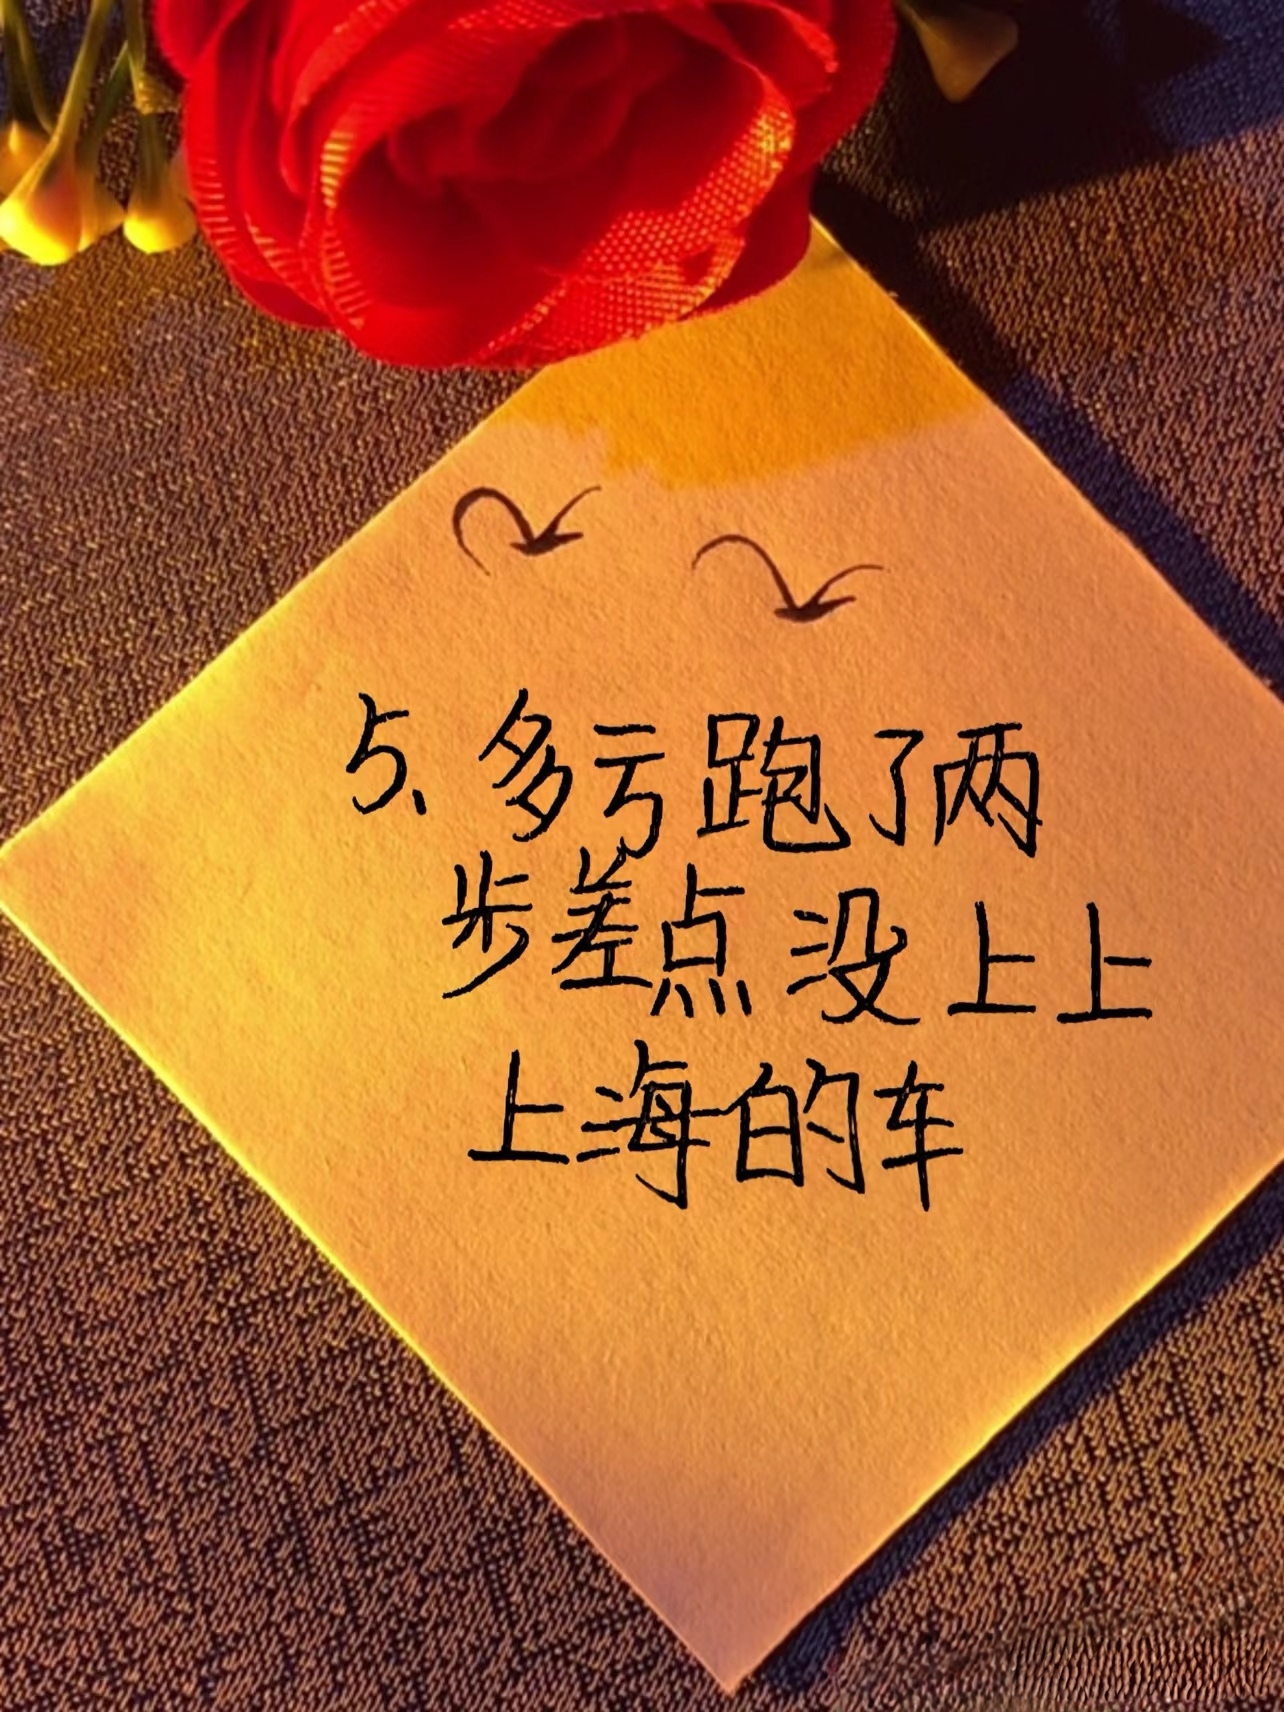 5、多亏跑了两
步差点没上上
上海的车